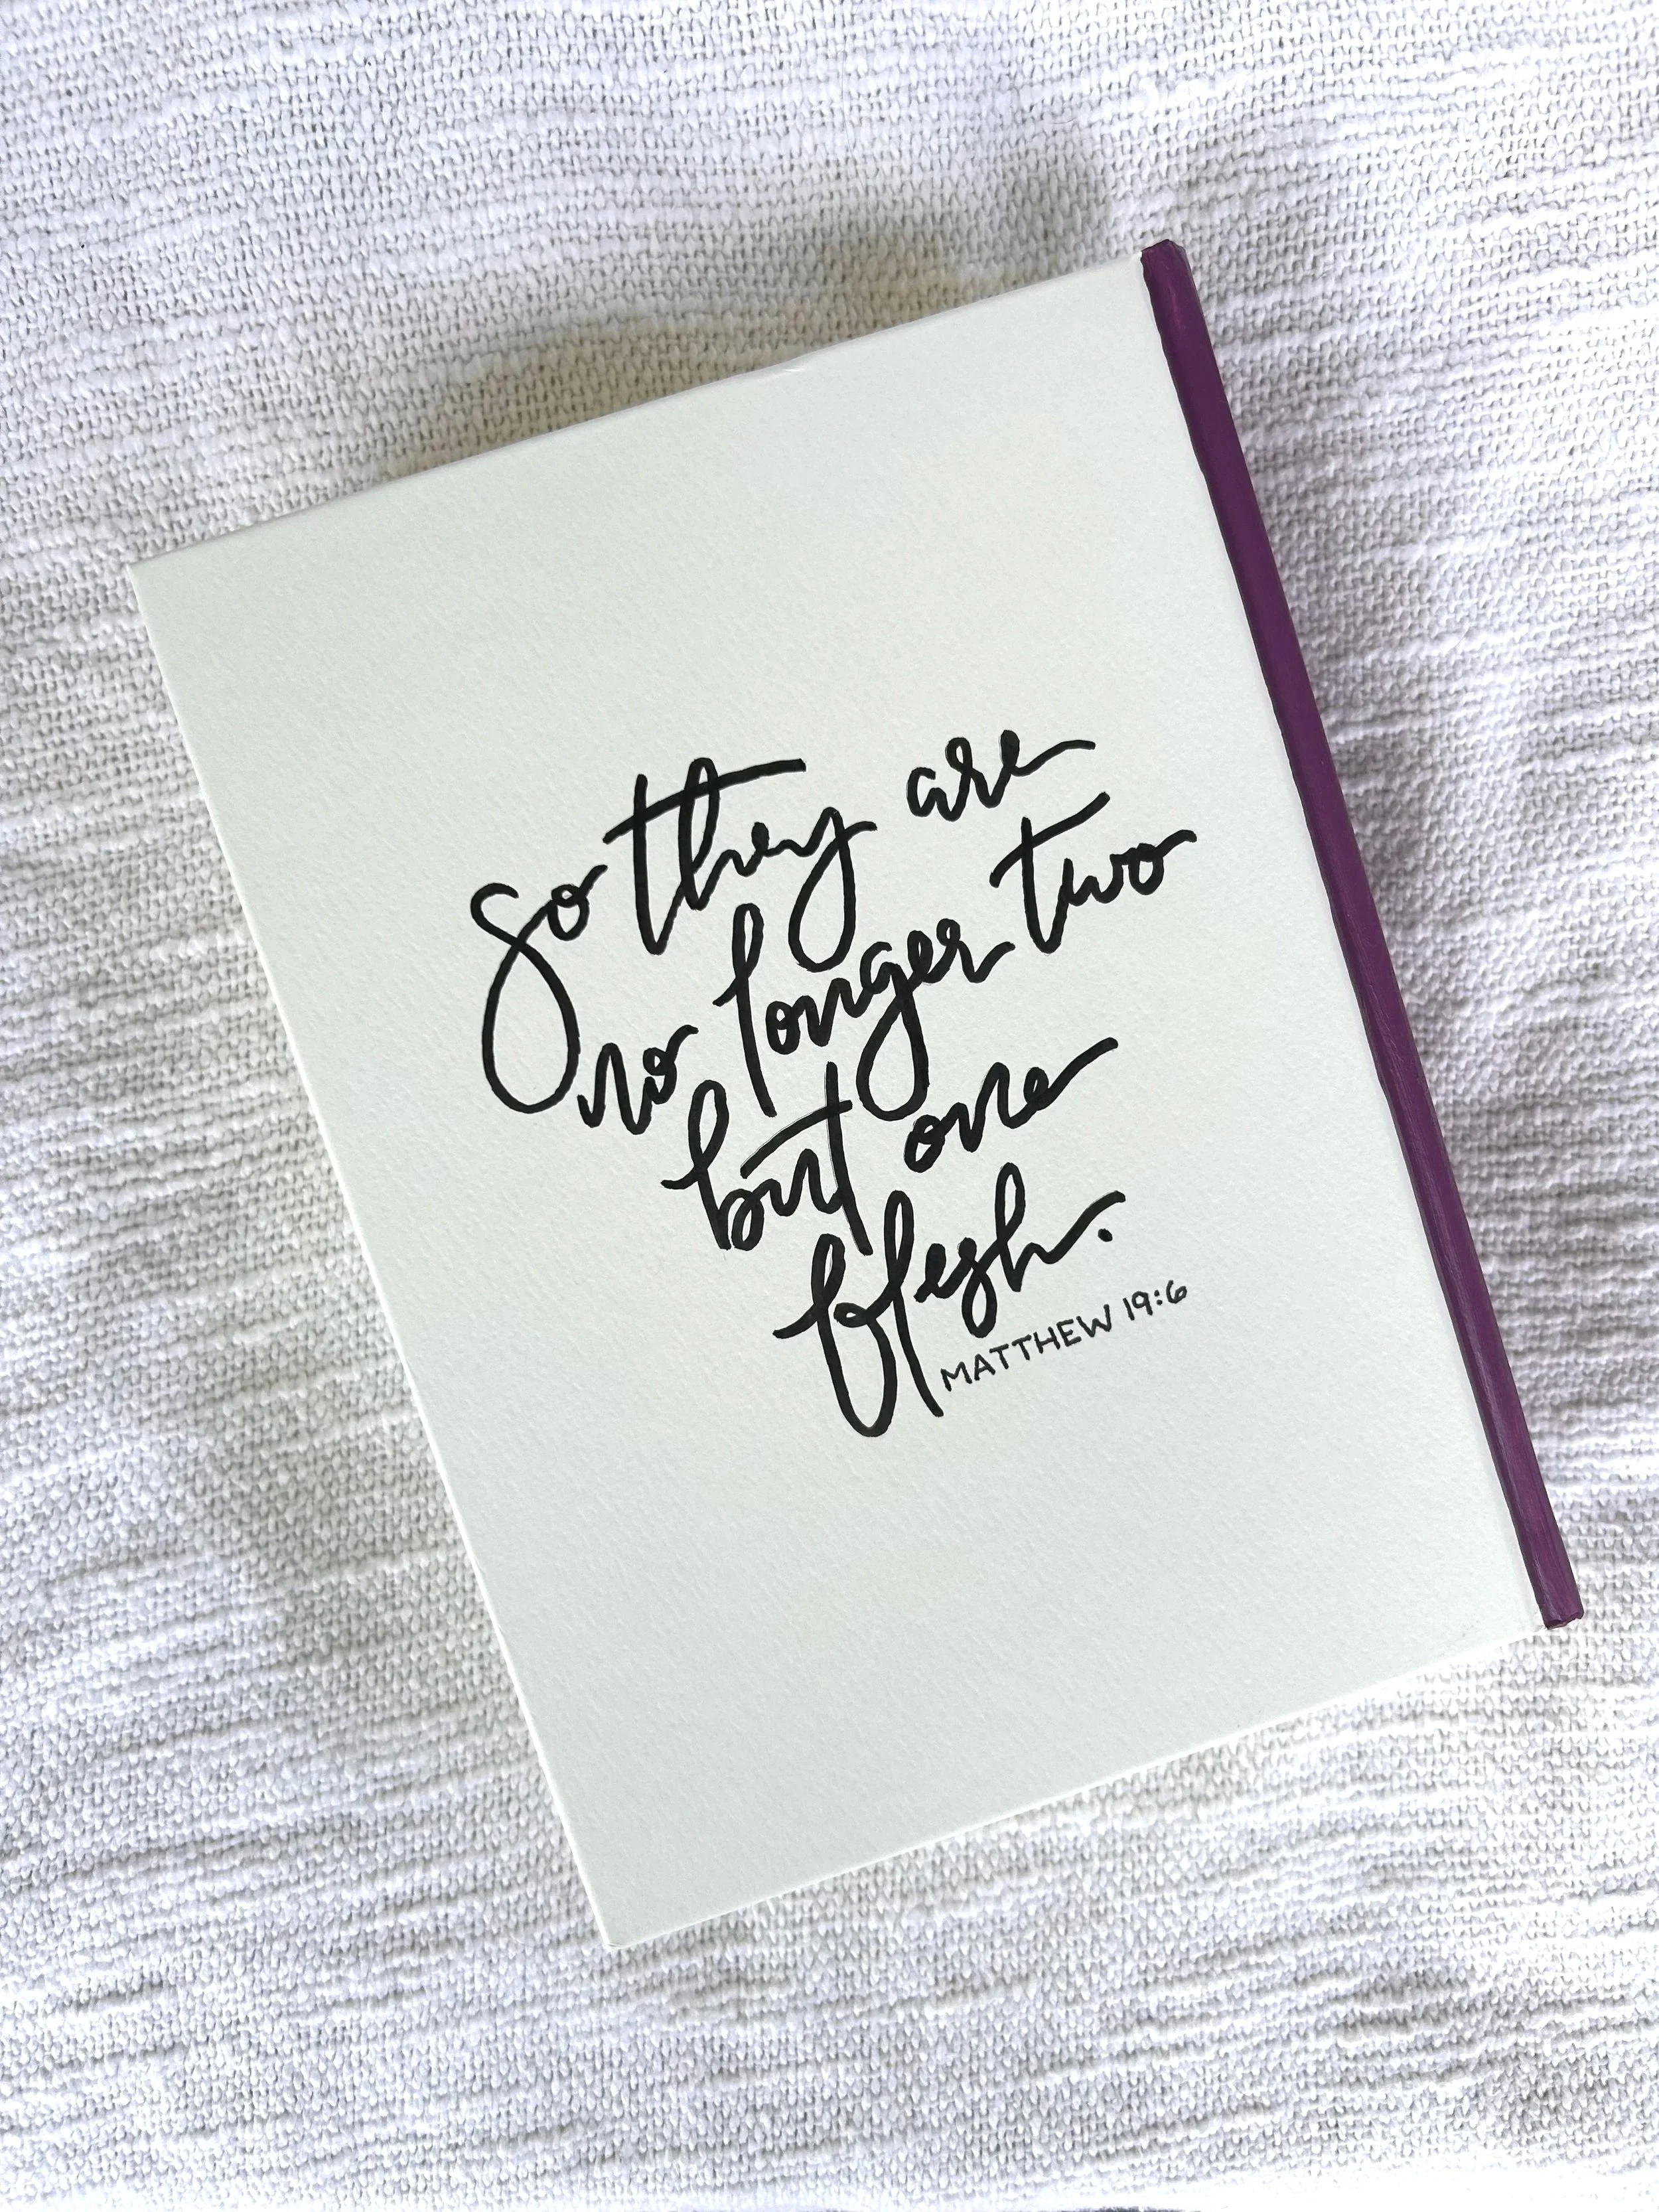 So they are
no longer two
but one
flesh.
MATTHEW 19:6